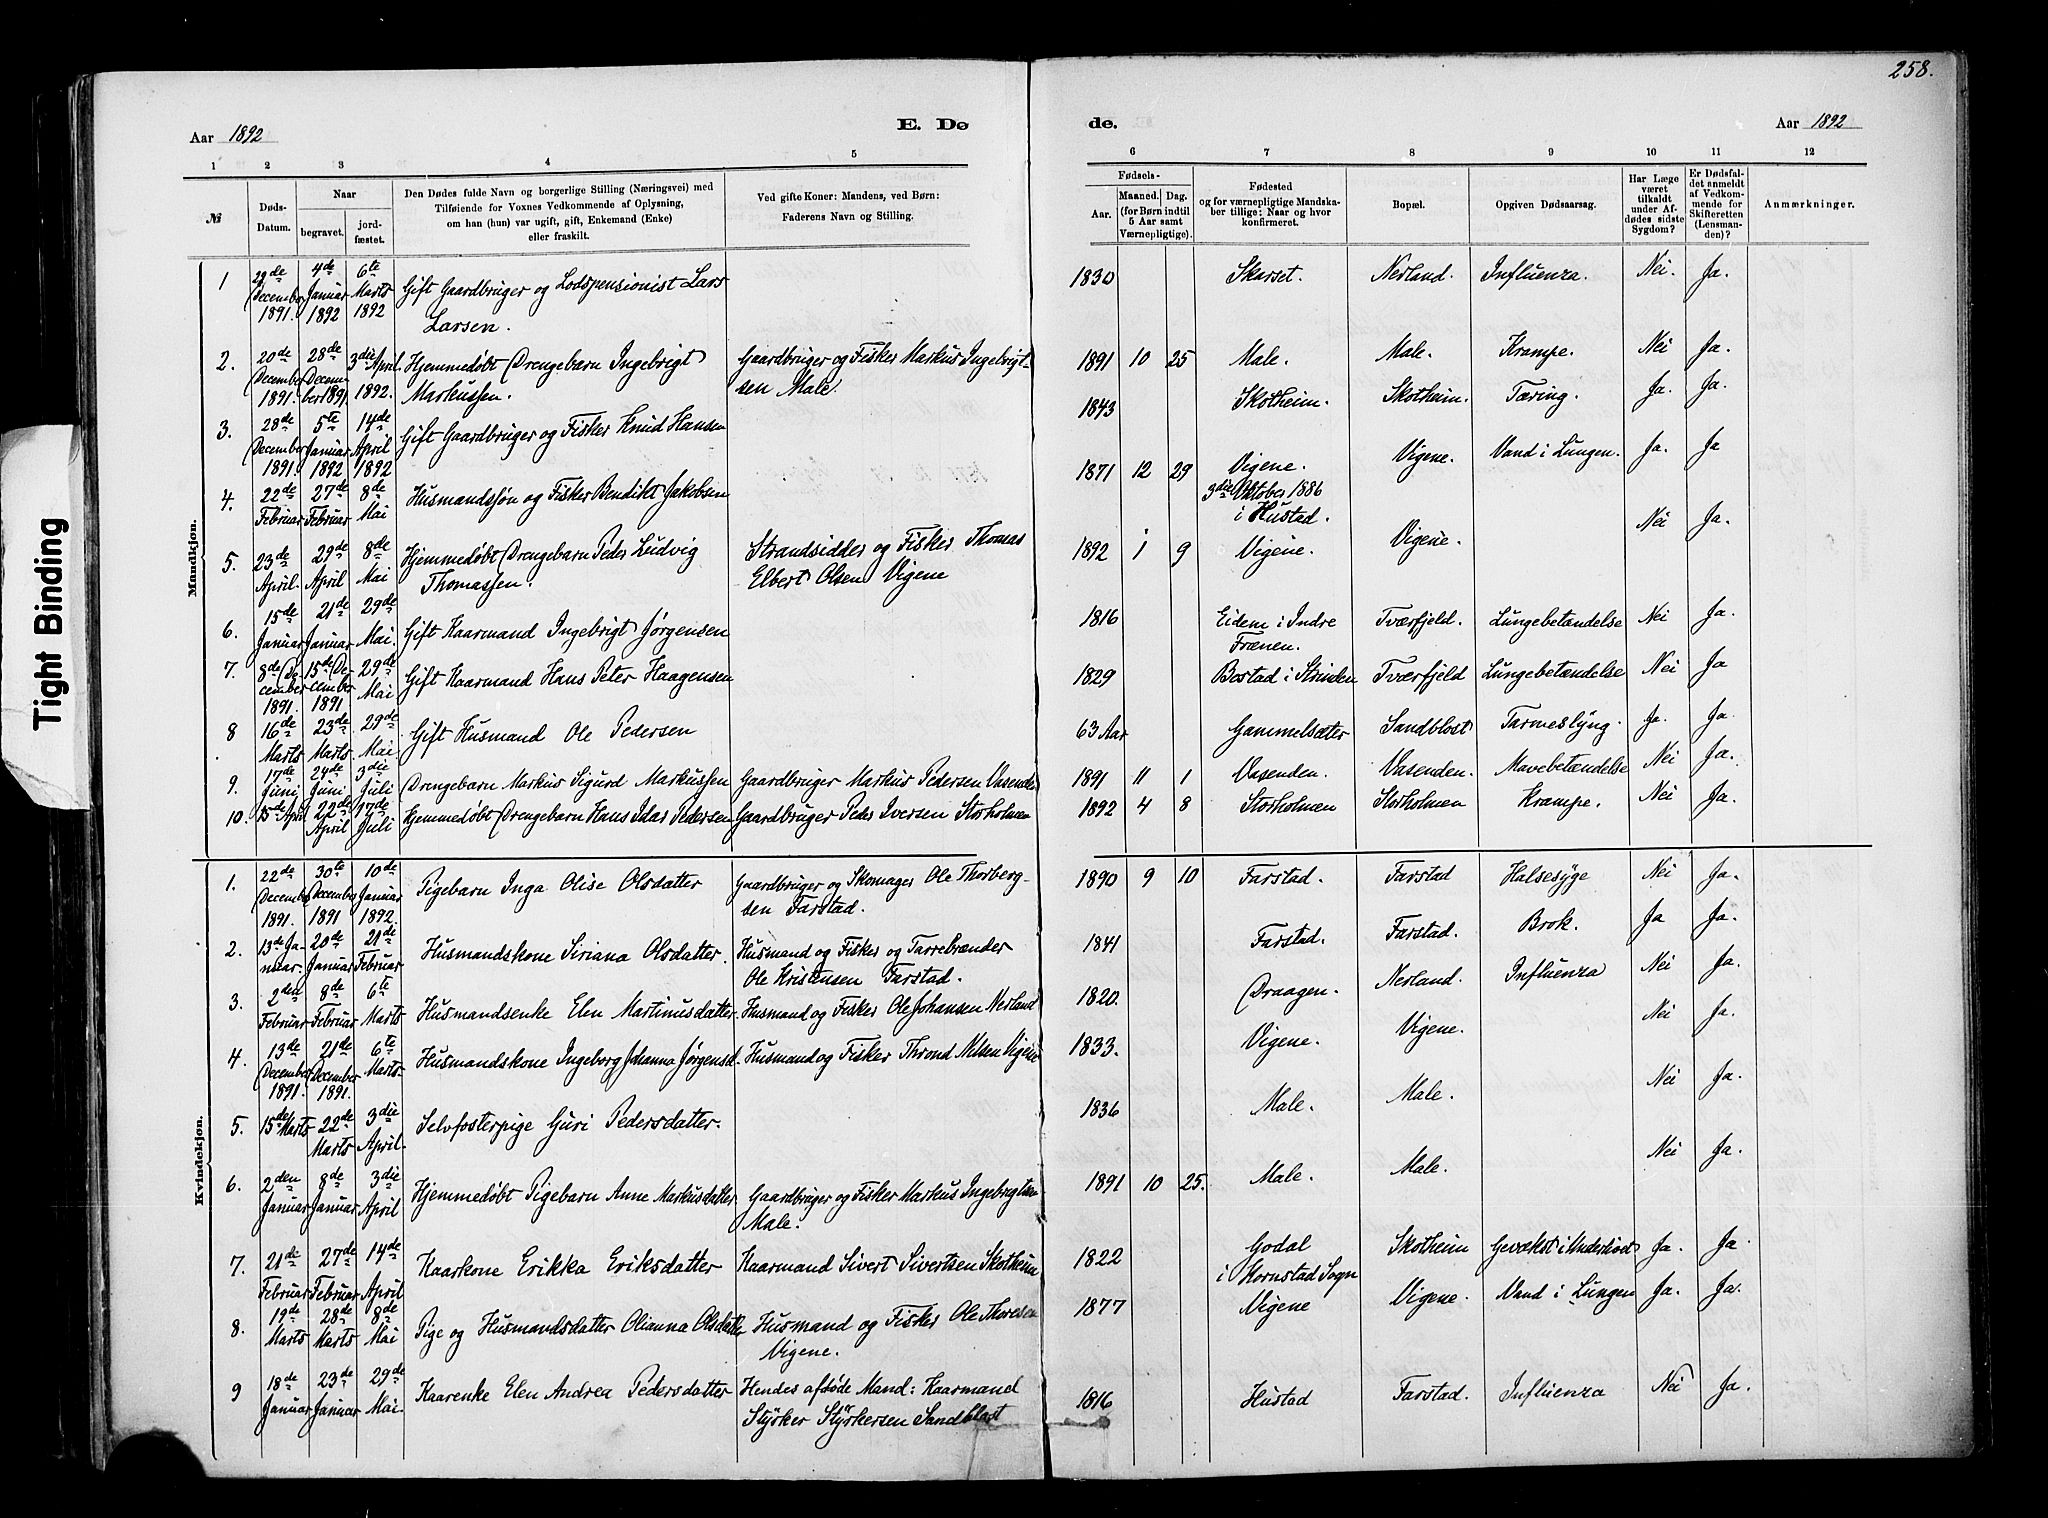 258.
Aar 1892
E. Dø
de.
Aar 1892
1 2 3 4 5 6 7 8 9 10 11 12
№
Døds-Datum.
Naar
begravet.
jord-fæstet.
Den Dødes fulde Navn og borgerlige Stilling (Næringsvei) med
Tilføiende for Voxnes Vedkommende af Oplysning,
om han (hun) var ugift, gift, Enkemand (Enke)
eller fraskilt.
Ved gifte Koner: Mandens, ved Børn:
Faderens Navn og Stilling.
Fødsels-
Aar.
Maaned. Dag.
(for Børn indtil
5 Aar samt
Værnepligtige).
Fødested
og for værnepligtige Mandska-
ber tillige: Naar og hvor
konfirmeret.
Bopæl.
Opgiven Dødsaarsag.
Har Læge
været
tilkaldt
under Af-
dødes sidste
Sygdom?
Er Dødsfal-
det anmeldt
af Vedkom-
mende for
Skifteretten
(Lensman-
den)?
Anmærkninger.
Mandkjøn.
1 29de December 1891. 4de Januar 1892 6te Marts 1892 Gift Gaardbruger og Lodspensionist Lars
Larsen. 1830 Skarset. Nerland. Influenza. Nei. Ja.
2. 20de December 1891. 28de December 1891. 3die April 1892. Hjemmedøbt Drengebarn Ingebrigt
Markussen. Gaardbruger og Fisker Markus Ingebrigt-
sen Male. 1891 10 25 Male. Male. Krampe. Nei Ja.
3. 28de December 1891. 5te Januar 1892 14de April 1892 Gift Gaardbruger og Fisker Knud Hansen 1843 Skotheim. Skotheim. Tæring. Ja. Ja.
4. 22de Februar 27de Februar 8de Mai Husmandssøn og Fisker Bendikt Jakobsen 1871 12 29 Vigene.
3die Oktober 1886
i Hustad. Vigene. Vand i Lungen. Ja. Ja
5. 23de April. 29de April 8de Mai Hjemmedøbt Drengebarn Peder Ludvig
Thomassen. Strandsidder og Fisker Thomas
Elbert Olsen Vigene 1892 1 9 Vigene. Vigene. Nei Ja.
6. 15de Januar 21de Januar 29de Mai. Gift Kaarmand Ingebrigt Jørgensen 1816 Eidem i Indre
Frænen. Tværfjeld. Lungebetændelse Nei Ja.
7. 8de December 1891. 15de December 1891 29de Mai Gift Kaarmand Hans Peter Haagensen 1829 Bostad i Strinden Tværfjeld Lungebetændelse Nei Ja
8 16de Marts 23de Marts. 29de Mai. Gift Husmand Ole Pedersen 63 Aar Gammelsæter Sandblost Tarmeslyng. Ja. Ja.
9. 17de Juni 24de Juni 3die Juli Drengebarn Markus Sigurd Markussen Gaardbruger Markus Pedersen Vasenden 1891 11 1 Vasenden. Vasenden. Mavebetændelse Nei Ja.
10. 15de April 22de April 17de Juli Hjemmedøbt Drengebarn Hans Idar Pedersen Gaardbruger Peder Iversen Storholmen 1892 4 8 Storholmen Storholmen Krampe. Nei Ja.
Kvindekjøn.
1. 22de December 1891. 30te December 1891 10de Januar 1892. Pigebarn Inga Olise Olsdatter Gaardbruger og Skomager Ole Thorberg-
sen Farstad. 1890 9 10 Farstad. Farstad Halsesyge Nei Ja.
2. 13de Januar. 20de Januar 21de Februar Husmandskone Siriana Olsdatter. Husmand og Fisker og Tarrebrænder
Ole Kristensen Farstad. 1841 Farstad. Farstad. Brok. Ja Ja.
3. 2den Februar 8de Februar 6te Marts Husmandsenke Elen Martinusdatter. Husmand og Fisker Ole Johansen Nerland 1820. Draagen. Nerland. Influenza Nei Ja.
4. 13de December 1891. 21de December 1891. 6te Marts. Husmandskone Ingeborg Johanna Jørgensd. Husmand og Fisker Thrond Nilsen Vigene 1833. Vigene. Vigene. Nei Ja.
5. 15de Marts 22de Marts 3die April. Selvfosterpige Guri Pedersdatter. 1836 Male. Male. Nei Ja.
6. 2den Januar 8de Januar 3die April Hjemmedøbt Pigebarn Anne Markusdatter Gaardbruger og Fisker Markus Ingebrigtsen
Male. 1891 10 25. Male. Male. Nei Ja.
7. 21de Februar 27de Februar 14de April Kaarkone Erikka Eriksdatter Kaarmand Sivert Sivertsen Skotheim 1822 Godal
i Kornstad Sogn Skotheim Gevækst i Underlivet Ja. Ja
8. 19de Marts 28de Marts 8de Mai Pige og Husmandsdatter Olianna Olsdatter Husmand og Fisker Ole Thoresen
Vigene. 1877 Vigene Vigene. Vand i Lungen Ja. Ja.
9 18de Januar 23de Januar 29de Mai. Kaarenke Elen Andrea Pedersdatter Hendes afdøde Mand: Kaarmand
Styrker Styrkersen Sandblost 1816 Hustad Farstad. Influenza Nei Ja.
Tight Binding